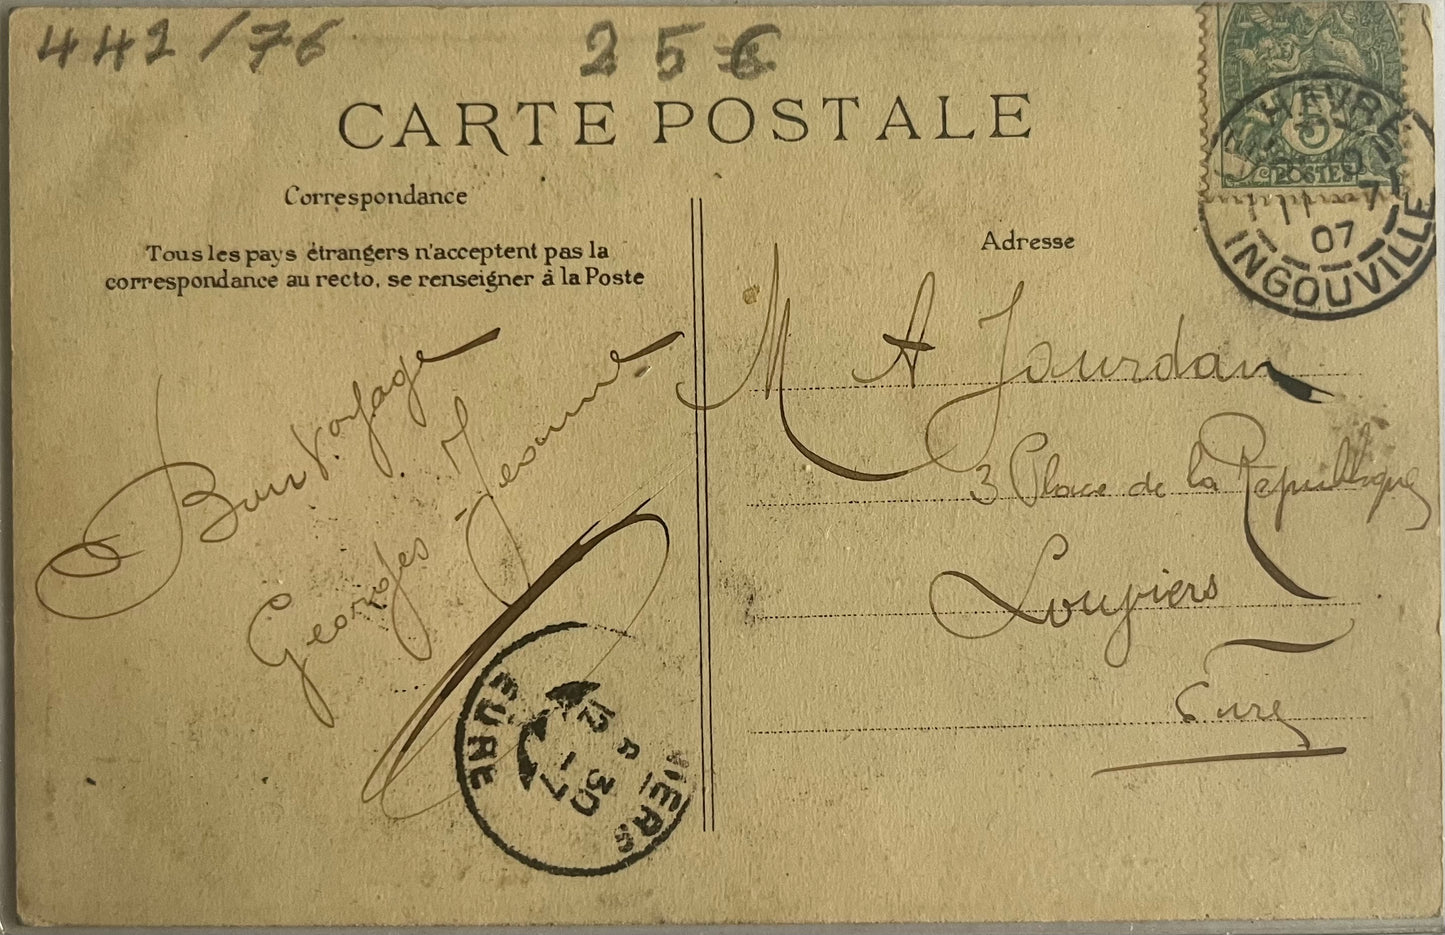 442/76
25€
CARTE POSTALE
Correspondance
Tous les pays étrangers n'acceptent pas la
correspondance au recto, se renseigner à la Poste
Bon Voyage
Georges Jeanne
EURE
12
30
-7
VIERS
Adresse
M A Jourdan
3 Place de la République
Louviers
Eure
5
POSTES
LE HAVRE
7
07
INGOUVILLE